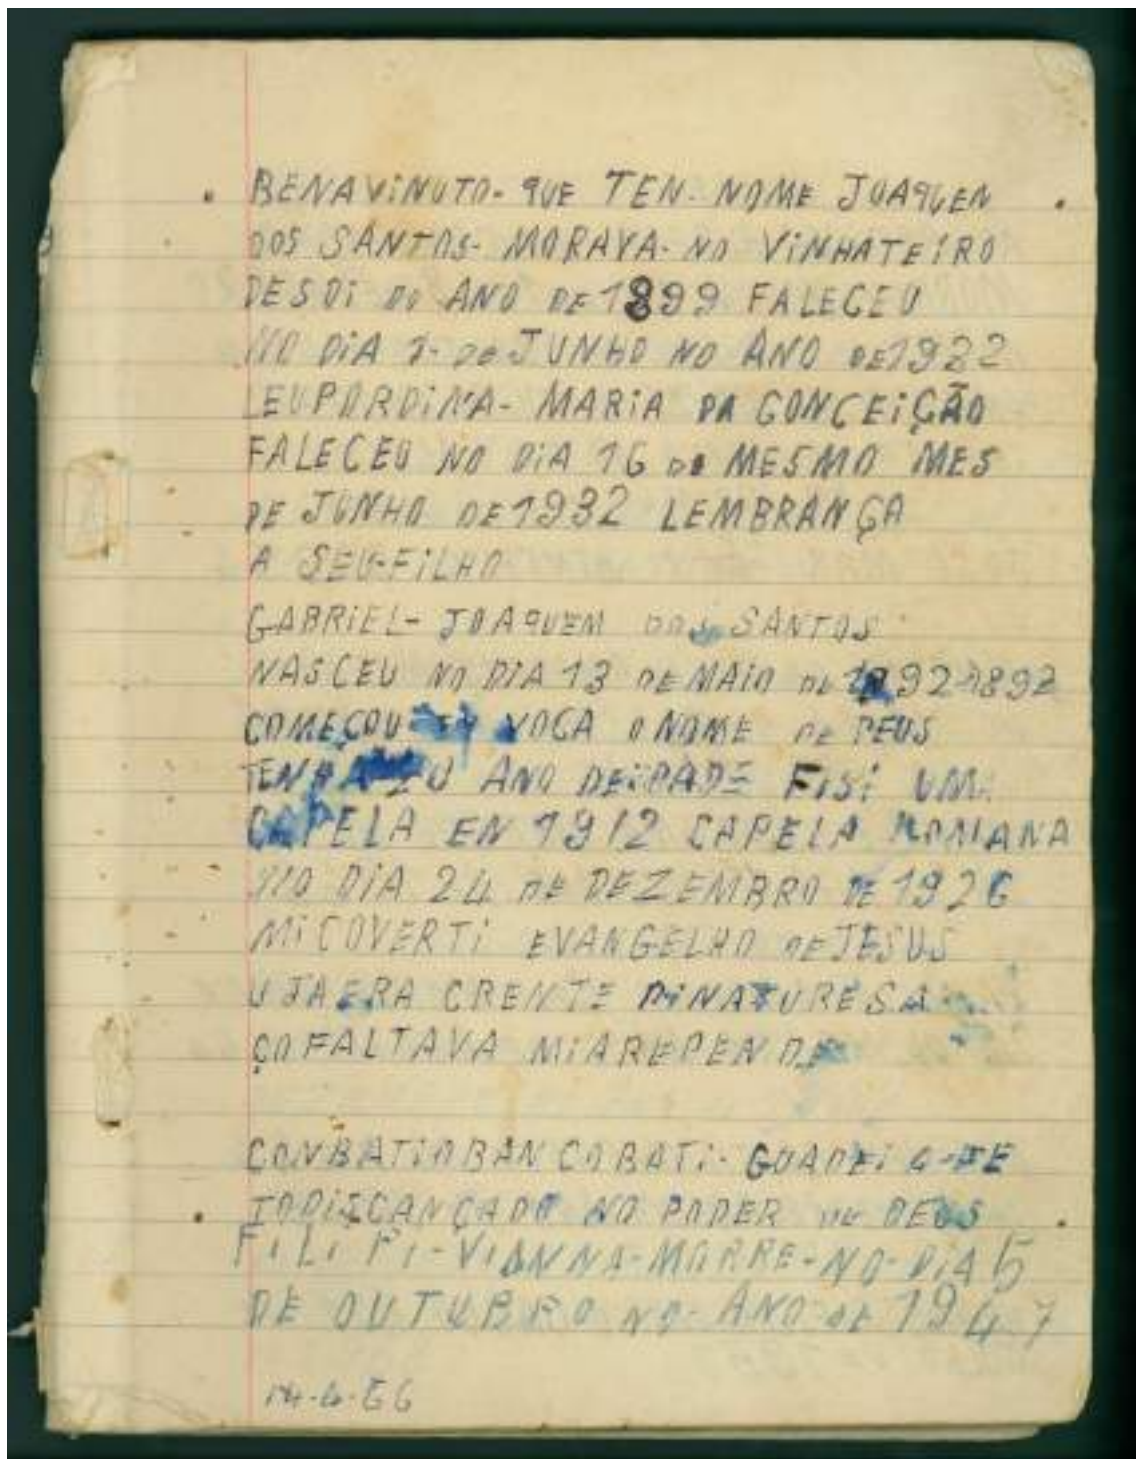 BENAVINUTO- QUE TEN- NOME JOAQUEN
DOS SANTOS- MORAVA- NO VINHATEIRO
DESDI DO ANO DE 1899 FALECEU
NO DIA 1- DE JUNHO NO ANO DE 1932
LEUPORDINA- MARIA DA CONCEIÇÃO
FALECEU NO DIA 16 DO MESMO MES
DE JUNHO DE 1932 LEMBRANÇA
A SEU-FILHO
GABRIEL- JOAQUEM DOS SANTOS
NASCEU NO DIA 13 DE MAIO DE 1892-1892
COMEÇOU VOCA O NOME DE DEUS
ANO DEIDADE FISI UMA
CAPELA EN 1912 CAPELA ROMANA
NO DIA 24 DE DEZEMBRO DE 1926
MI COVERTI EVANGELHO DE JESUS
U JA ERA CRENTE DINATURESA
ÇO FALTAVA MIAREPENDE
CONBATIO BAN COBATI- GUADEI A-FE
TODISCANÇADO NO PODER DE DEUS
FILIPI-VIANNA-MORRE-NO-DIA 5
DE OUTUBRO NO- ANO DE 1947